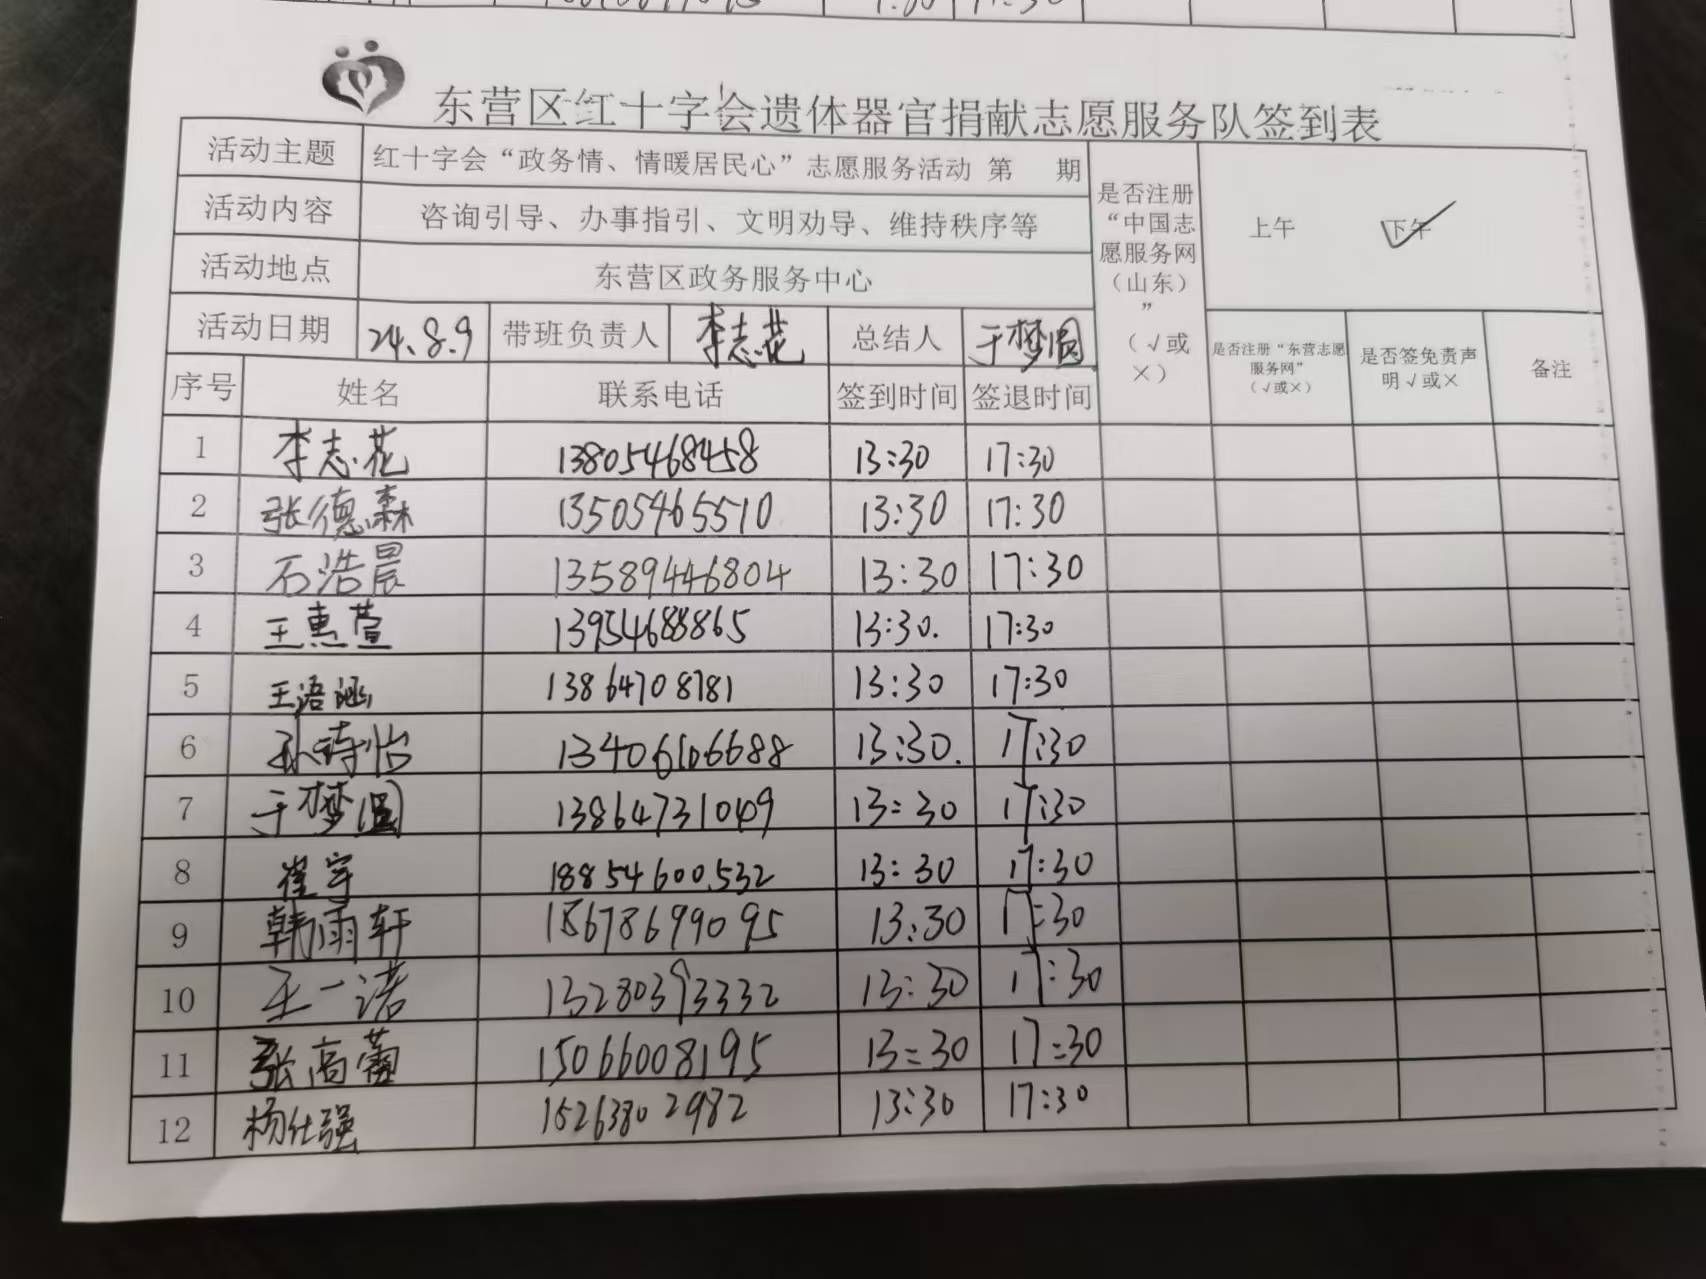 东营区红十字会遗体器官捐献志愿服务队签到表
活动主题 红十字会“政务情、情暖居民心”志愿服务活动 第 期
是否注册“中国志愿服务网（山东）”（√或×）
上午 下午
活动内容 咨询引导、办事指引、文明劝导、维持秩序等
活动地点 东营区政务服务中心
活动日期 24.8.9 带班负责人 李志花 总结人 于梦圆
是否注册“东营志愿服务网”（√或×） 是否签免责声明√或× 备注
序号 姓名 联系电话 签到时间 签退时间
1 李志花 13805468458 13:30 17:30
2 张德森 13505465510 13:30 17:30
3 石浩晨 13589446804 13:30 17:30
4 王惠萱 13:30. 17:30
5 王语涵 13864708781 13:30 17:30
6 孙诗怡 13406106688 13:30. 17:30
7 于梦圆 13:30 17:30
8 崔宇 18854600532 13:30 17:30
9 韩雨轩 18678699095 13:30 17:30
10 王一诺 13280393332 13:30 17:30
11 张高蕾 15066008195 13:30 17:30
12 杨仕强 15263802982 13:30 17:30